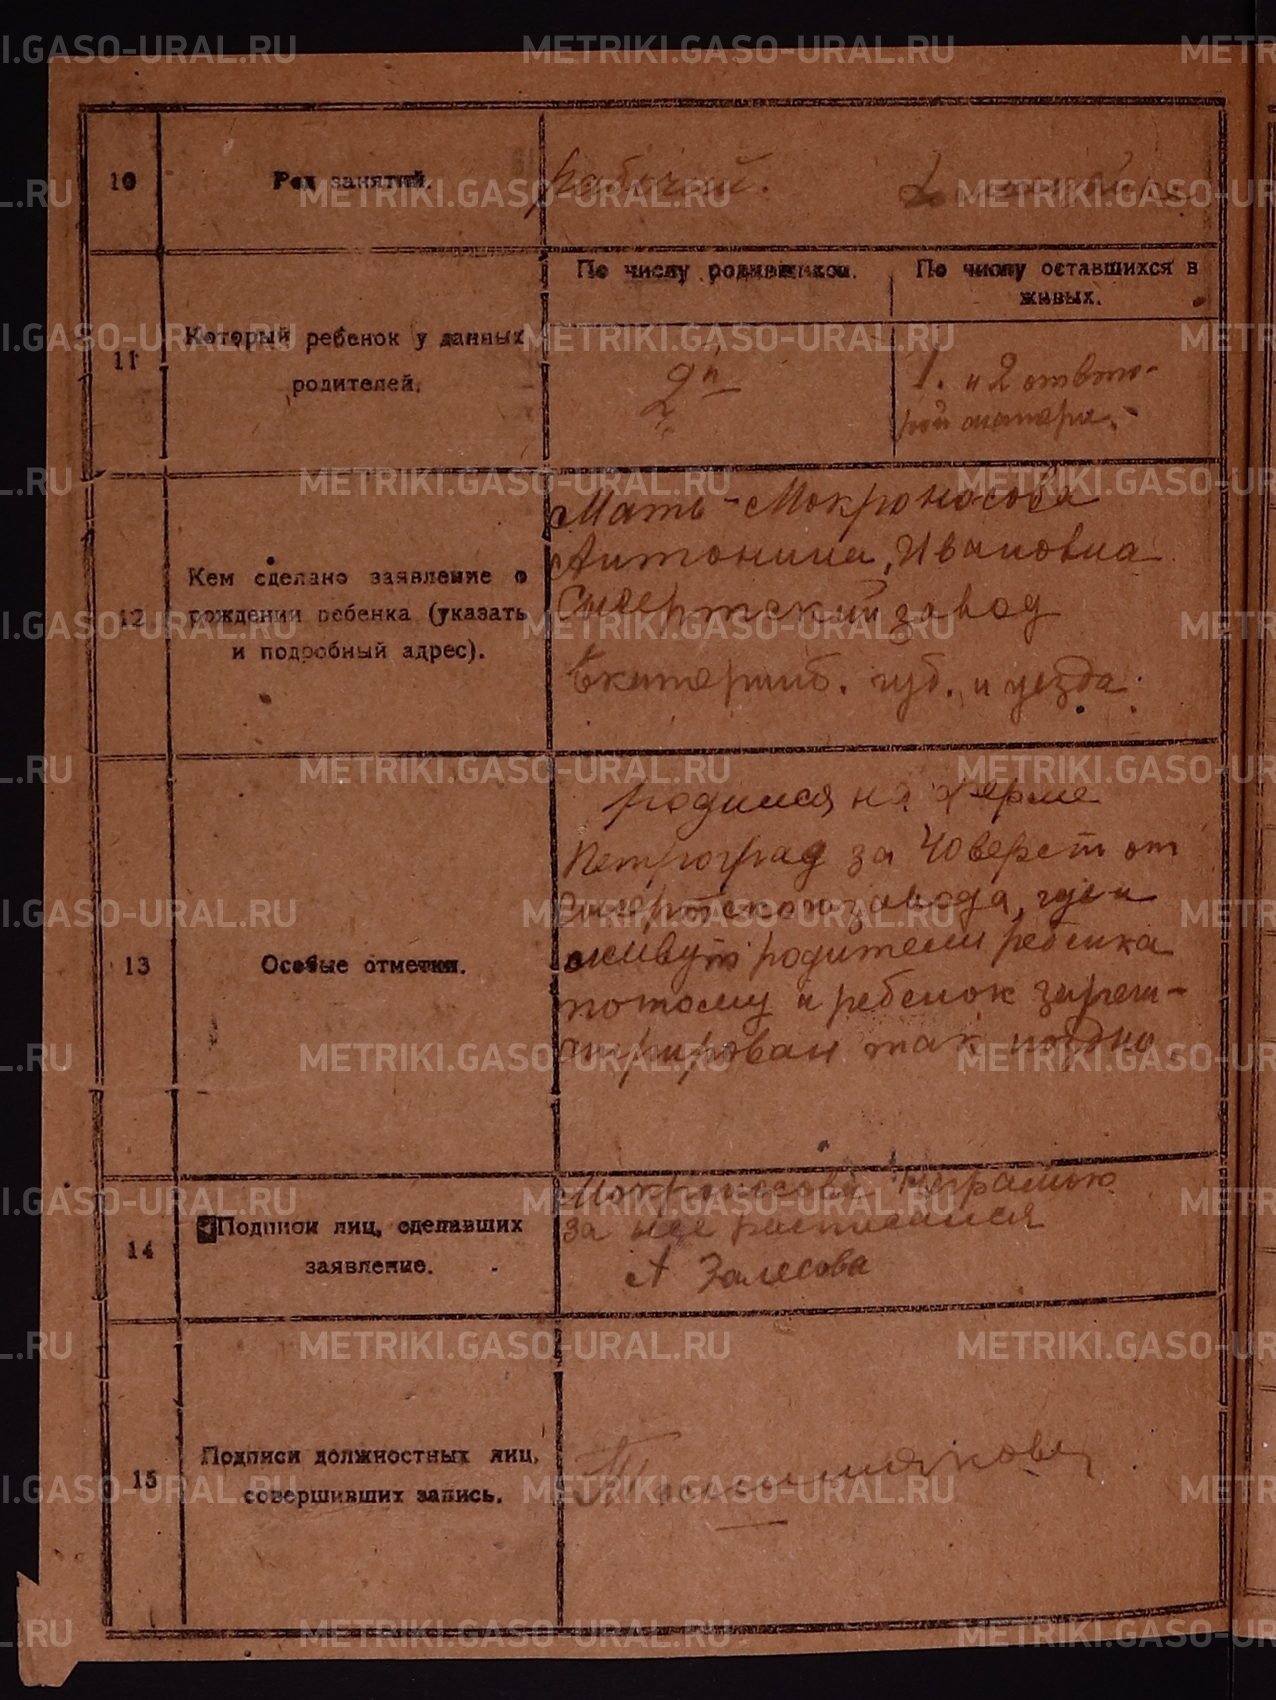 METRIKI.GASO-URAL.RU
10
Род занятий.
рабочий.
11
Который ребенок у данных
родителей.
По числу родившихся.
По числу оставшихся в
живых.
2й
1. и 2 от вто-
рой матери.
12
Кем сделано заявление о
рождении ребенка (указать
и подробный адрес).
Мать - Мокроносова
Антонина, Ивановна
Сысертский завод
Екатеринб. губ. и уезда.
13
Особые отметки.
родился на ферме
Петроград за 40 верст от
Сысертского завода, где и
живут родители ребенка
потому и ребенок зареги-
стрирован так поздно.
14
Подписи лиц, сделавших
заявление.
Мокроносова неграмотн
за нее расписался
А Залесова
15
Подписи должностных лиц,
совершивших запись.